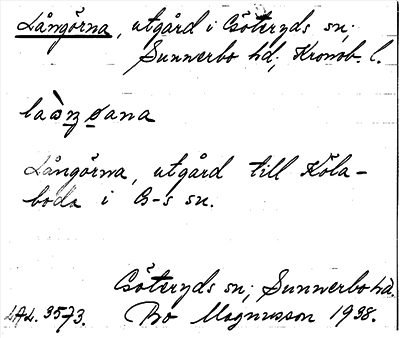 Långörna, utgård i Göteryds sn;
Sunnerbo hd, Kronob. l.
Långörna, utgård till Köla-
boda i G-s sn.
Göteryds sn; Sunnerbo hd.
LAL. 3573. Bo Magnusson 1938.